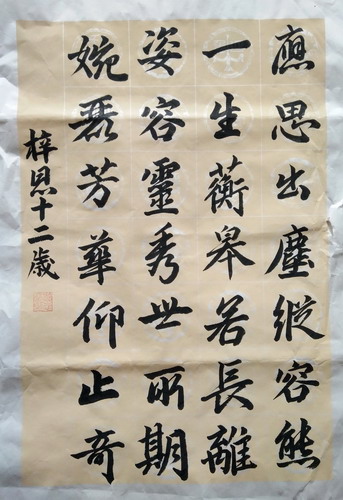 應思出塵縱容態
一生蘅皋若長離
姿容靈秀世所期
婉麗芳華仰止奇
梓恩十二歲